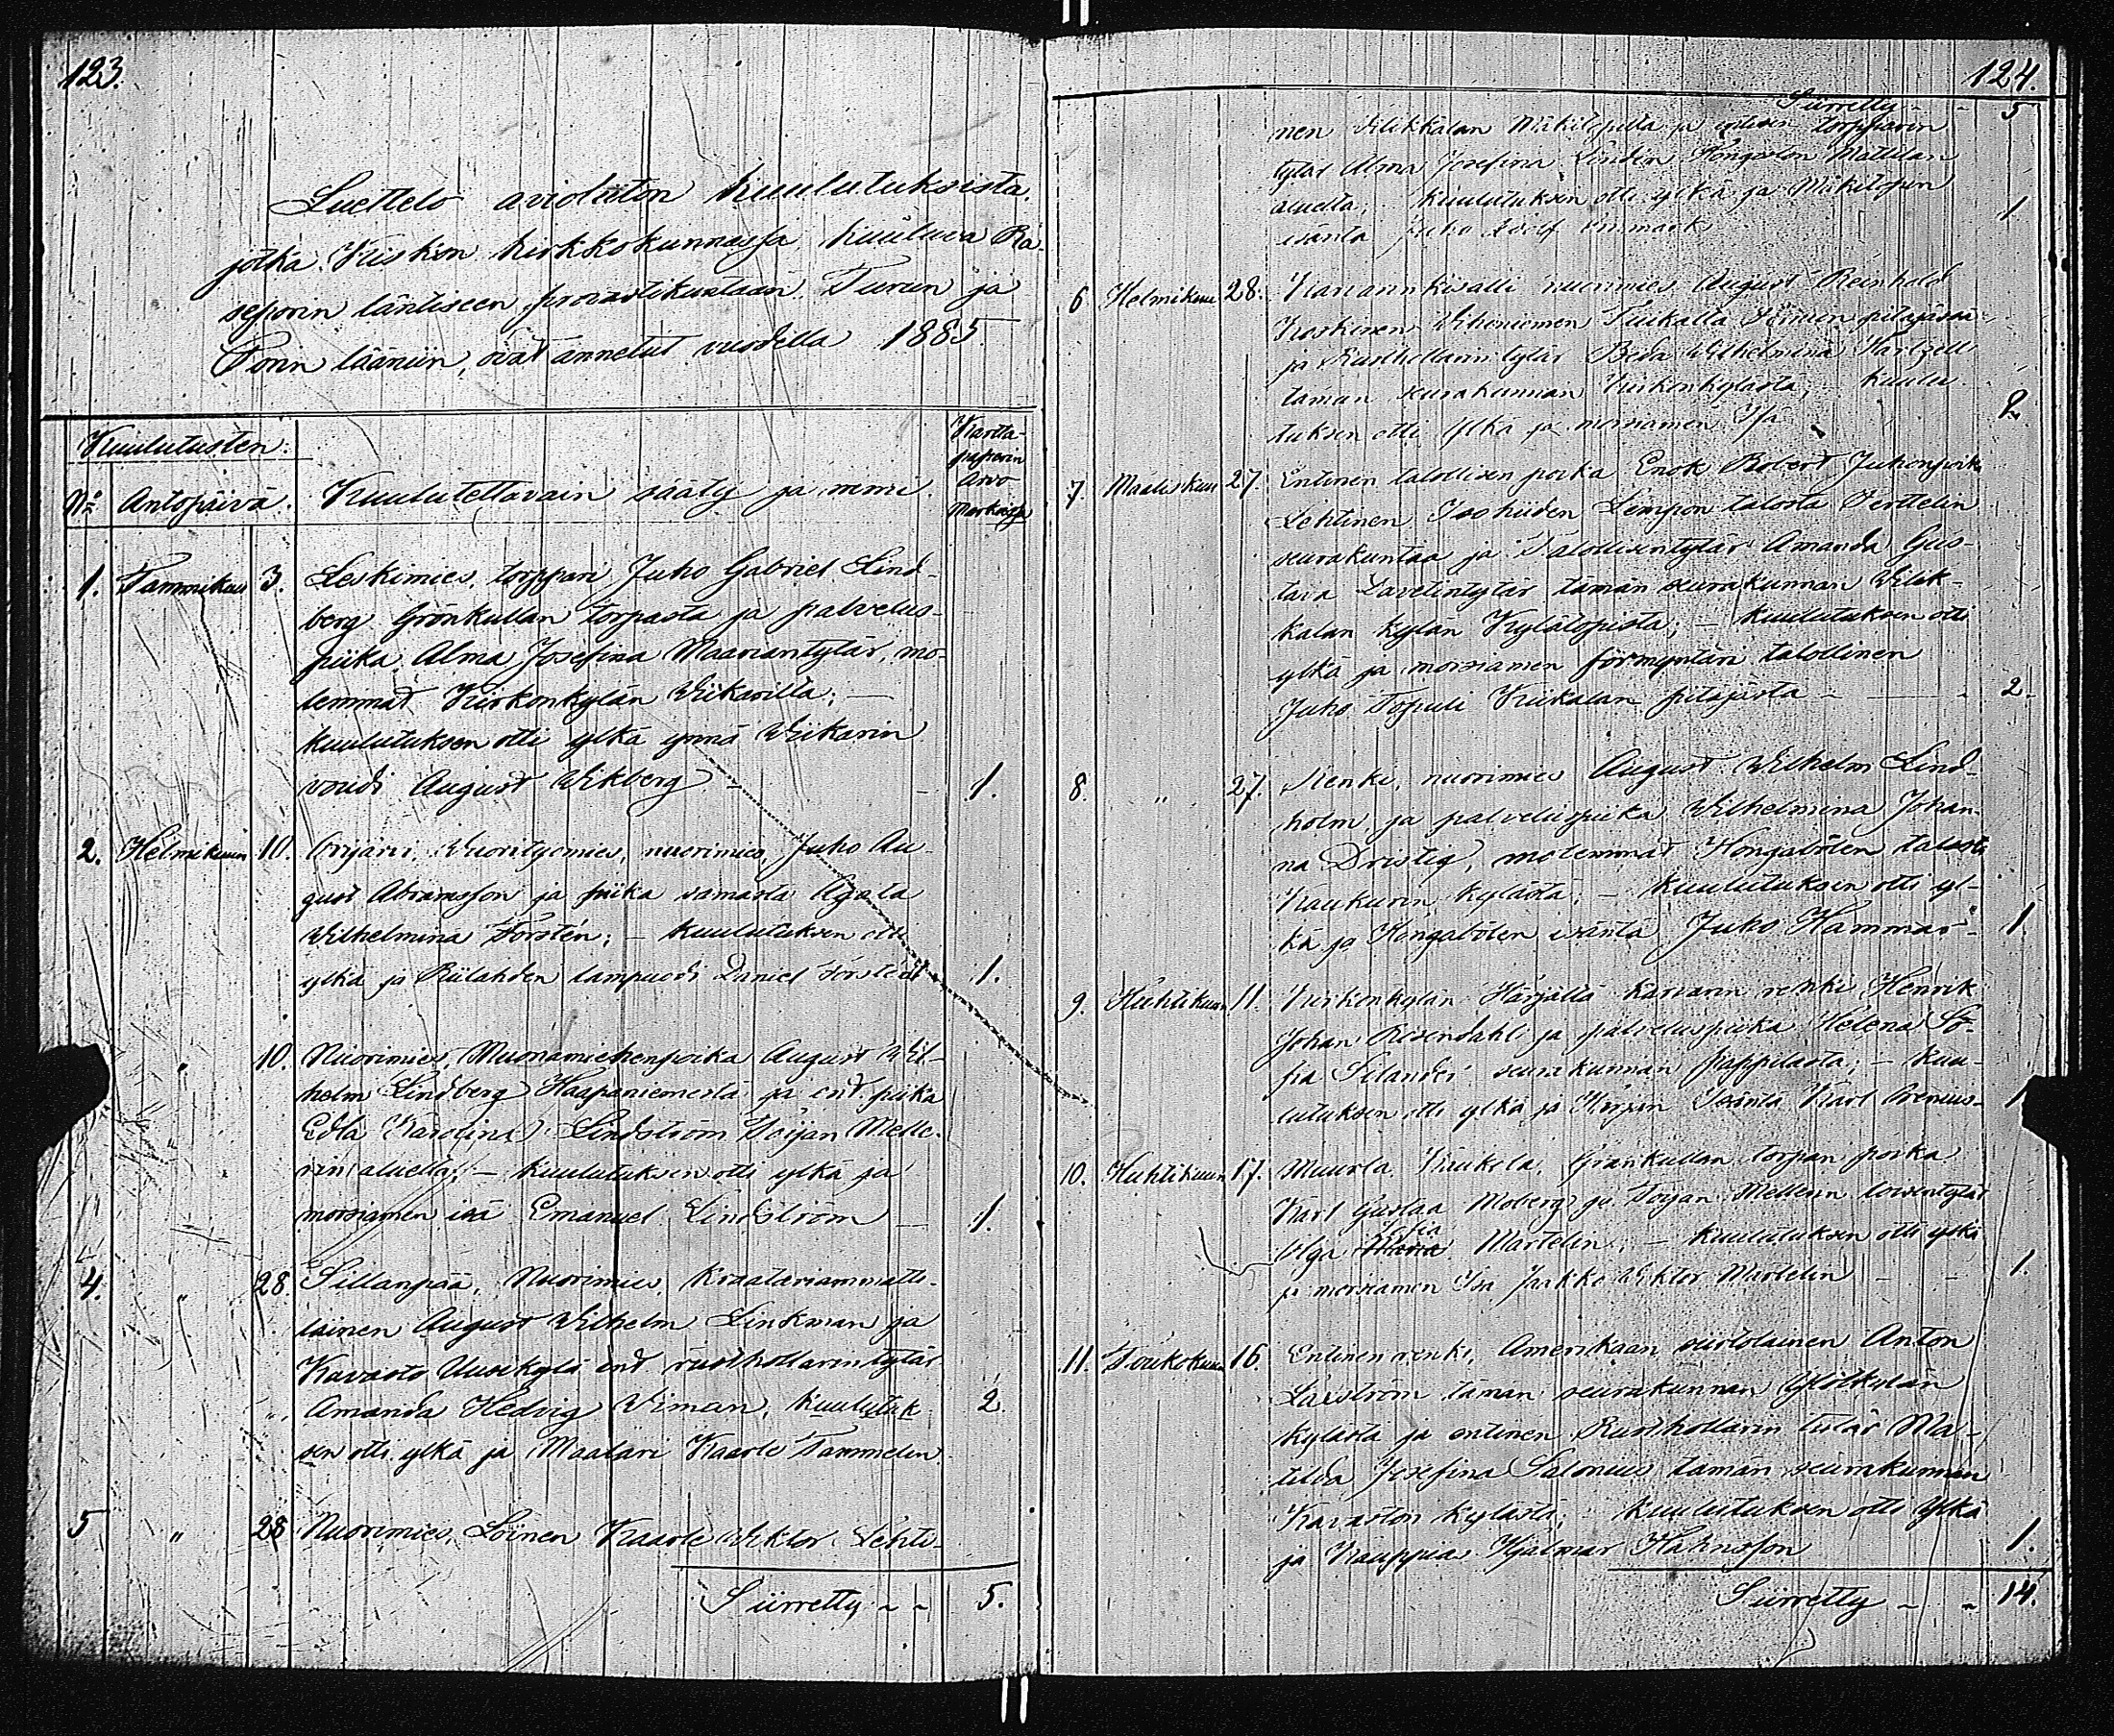 123.
Luettelo avioliiton kuulutuksista,
jotka Kiskon kirkkokunnassa, kuuluva Ra-
seporin läntiseen provastikuntaan Turun ja
Porin lääniin, ovat annetut vuodella 1885.
Kuulutusten.
Nº Antopäivä. Kuulutettavain sääty ja nimi.
Kartta-
paperin
Arvo
Markoissa
1. Tammikuu 3. Leskimies, torppari Juho Gabriel Lind-
berg Grönkullan torpasta ja palvelus-
piika Alma Josefina Maariantytär, mo-
lemmat Kirkonkylän Wiikarilta; —
kuulutuksen otti ylkä ynnä Wiikarin
voudi August Wikberg — 1.
2. Helmikuun 10. Orijärvi, Wuorityömies, nuorimies, Juho Au-
gust Abramsson ja piika samasta Agata
Wilhelmina Forstén; — kuulutuksen otti
ylkä ja Riilahden lampuodi Daniel Forstedt 1.
" 10. Nuorimies, Muonamiehenpoika August Wil-
helm Lindberg Haapaniemestä ja ent. piika
Edla Karolina Lindström Toijan Melle-
rin alueelta; — kuulutuksen otti ylkä ja
morsiamen isä Emanuel Lindström — 1.
4. " 28. Sillanpää, Nuorimies, kraatariammatti-
lainen August Wilhelm Linkman ja
Kavasto Uusikylä ent rusthollarin tytär
Amanda Hedvig Wiman, kuulutuk- 2.
sen otti ylkä ja Maalari Kaarle Tammelin
5 " 28 Nuorimies, Loinen Kaarle Wiktor Lehti-
Siirretty - - 5.
124.
Siirretty - - 5
nen Wilikkalan Mäkilopilta ja entisen torpparin
tytär Alma Josefina Lindén Hongiston Mattilan
aluelta; kuulutuksen otti ylkä ja Mäkilopin
isäntä Juho Adolf Enmark 1
6 Helmikuu 28. Karvarinkisälli nuorimies August Reinhold
Koskinen Wiheniemen Tiukalta pitäjässä
ja Rusthollarin tytär Beda Wilhelmina Karlzell
tämän seurakunnan Kirkonkylästä; kuulu-
tuksen otti Ylkä ja morsiamen Isä 2.
7. Maaliskuu 27. Entinen talollisen poika Enok Robert Juhonpoika
Lehtinen Isohiiden Lempon talosta Perttelin
seurakuntaa ja Talollisentytär Amanda Gus-
tava Davetintytär tämän seurakunnan Wilik-
kalan kylän Kylätopista; — kuulutuksen otti
ylkä ja morsiamen förmyntäri talollinen
Juho Topuli Kiikalan pitäjästä - — - 2
8. " 27. Renki, nuorimies August Wilhelm Lind-
holm, ja palveluspiika Wilhelmina Johan-
na Dristig, molemmat Hongabölen talosta
Kaukurin kylästä; — kuulutuksen otti yl-
kä ja Hongabölen isäntä Juho Hammar - 1
9. Huhtikuun 11. Kirkonkylän Härjältä karvarin renki Henrik
Johan Risendahl ja palveluspiika Helena So-
fia Selander seurakunnan pappilasta; — kuu-
lutuksen otti ylkä ja Härjän Isäntä Karl Arenius - 1
10. Huhtikuun 17. Muurla Kaukola, Gränkullan torpan poika
Karl Gustaa Moberg ja Toijan Mellerin loisentytär
Sofia
Olga Maria Martelin; — kuulutuksen otti ylkä
ja morsiamen Isä Jaakko Wiktor Martelin — - 1.
11. Toukokuun 16. Entinen renki, Amerikaan siirtolainen Anton
Laxström tämän seurakunnan Ylölkylän
kylästä ja entinen Rusthollarin tytär Ma-
tilda Josefina Salonius tämän seurakunnan
Kavaston kylästä; kuulutuksen otti ylkä
ja Kauppias Hjalmar Hahnsson 1.
Siirretty - - 14.